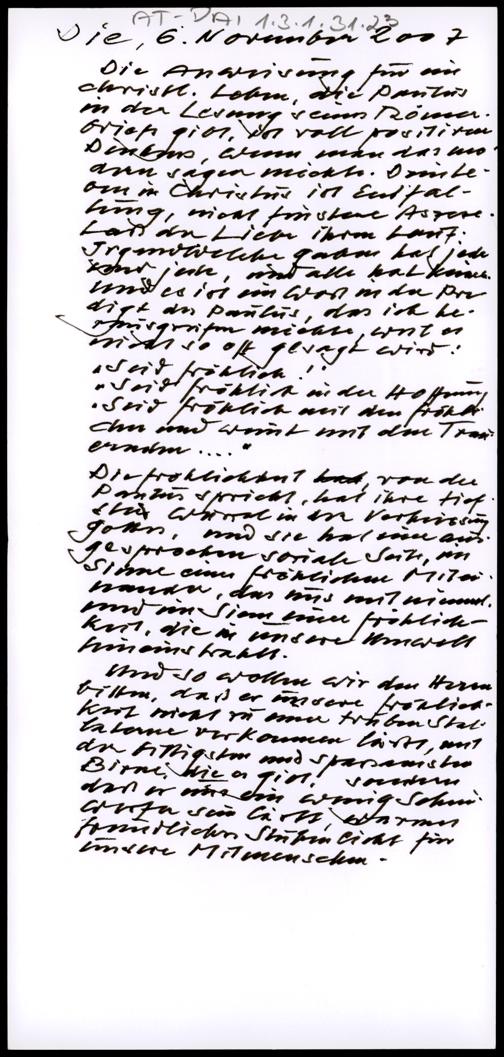 AT-DAI 1.3.1.31.23
Die, 6. November 2007
Die Anweisung für ein
christl. Leben, die Paulus
in der Lesung seines Römer-
briefs gibt, ist voll positiven
Denkens, wenn man das mo-
dern sagen möchte. Dem Le-
ben in Christus ist Entfal-
tung, nicht finstere Askese.
Laßt der Liebe ihren Lauf.
Irgendwelche Gaben hat jeder
und jede, und alle hat keiner.
Und es ist ein Wort in der Pre-
digt des Paulus, das ich he-
rausgreifen möchte, weil es
nicht so oft gesagt wird:
"Seid fröhlich!!
"Seid fröhlich in der Hoffnung
"Seid fröhlich mit den Fröhli-
chen und weint mit den Trau-
ernden ...."
Die Fröhlichkeit hat, von der
Paulus spricht, hat ihre tief-
ste Wurzel in der Verheissung
Gottes, und sie hat eine aus-
gesprochen soziale Seite, im
Sinne eines fröhlichen Mitei-
nander, das uns mitnimmt,
und im Sinne einer Fröhlich-
keit, die in unsere Umwelt
hineinstrahlt.
Und so wollen wir den Herrn
bitten, daß er unsere Fröhlich-
keit nicht zu einer trüben Stal-
laterne verkommen läßt, mit
der billigsten und sparsamsten
Birne, die es gibt, sondern
daß er uns ein wenig Schein-
werfer sein läßt, warmes
freundliches Stubenlicht für
unsere Mitmenschen.